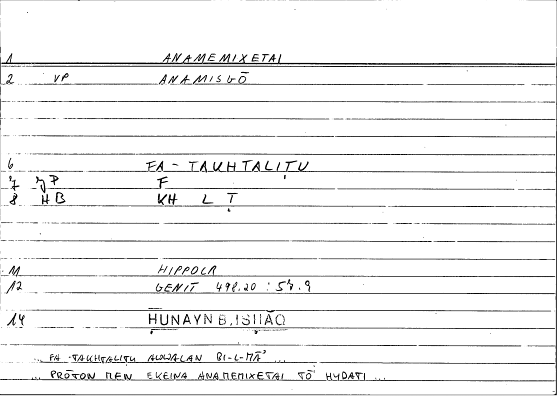 1 ANAMEMIXETAI
2 VP ANAMISGŌ
6 FA-TAKHTALIṬU
7 JP F
8 HB KH L Ṭ
11 HIPPOCR
12 GENIT 498.20 : 57.9
14 ḤUNAYN B. ISḤĀQ
... FA-TAKHTALIṬU AWWALAN BI-L-MĀʾ ...
... PRŌTON MEN EKEINA ANAMEMIXETAI TŌ HYDATI ...